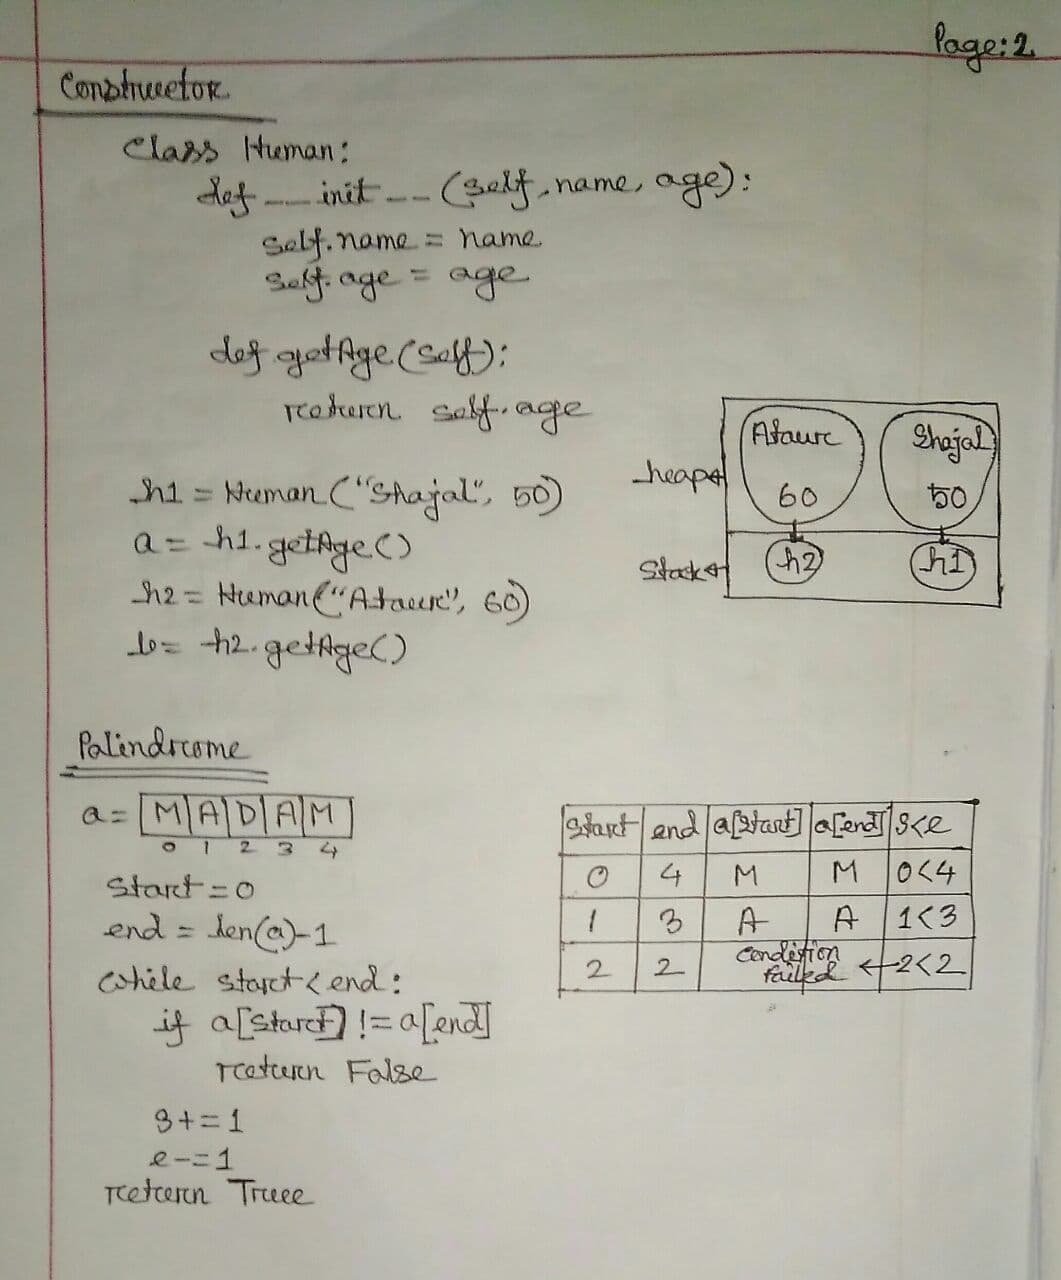 Page: 2
Constructor
Class Human:
def __init__(self, name, age):
self.name = name
self.age = age
def getAge(self):
return self.age
h1 = Human("Shajal", 50)
a = h1.getAge()
h2 = Human("Ataur", 60)
b = h2.getAge()
heap→
Ataur Shajal
60 50
Stack→
h2 h1
Palindrome
a = M A D A M
0 1 2 3 4
Start = 0
end = len(a)-1
While start < end:
if a[start] != a[end]
return False
s+=1
e-=1
return True
Start end a[start] a[end] s<e
0 4 M M 0<4
1 3 A A 1<3
2 2 Condition failed ← 2<2